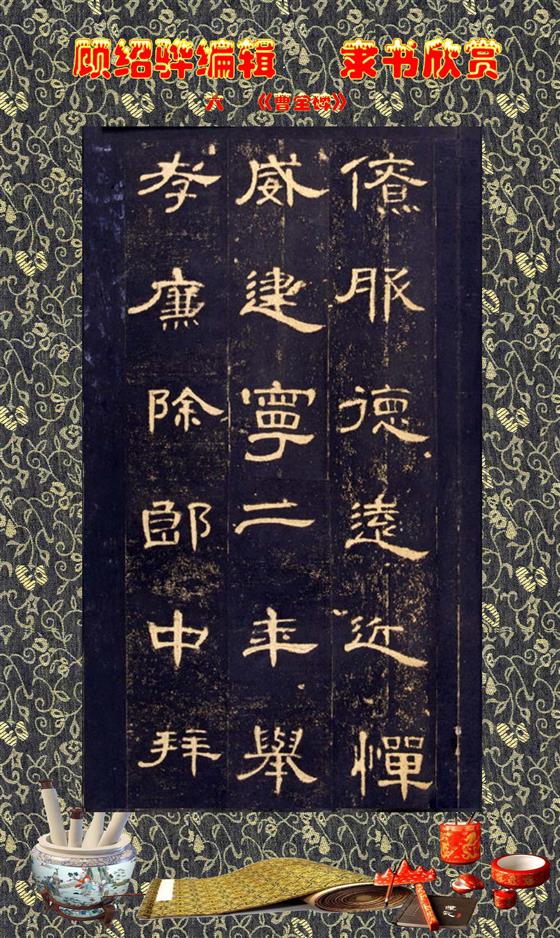 顾绍骅编辑 隶书欣赏
六 《曹全碑》
僚服德遠近憚
威建寧二年舉
孝廉除郎中拜